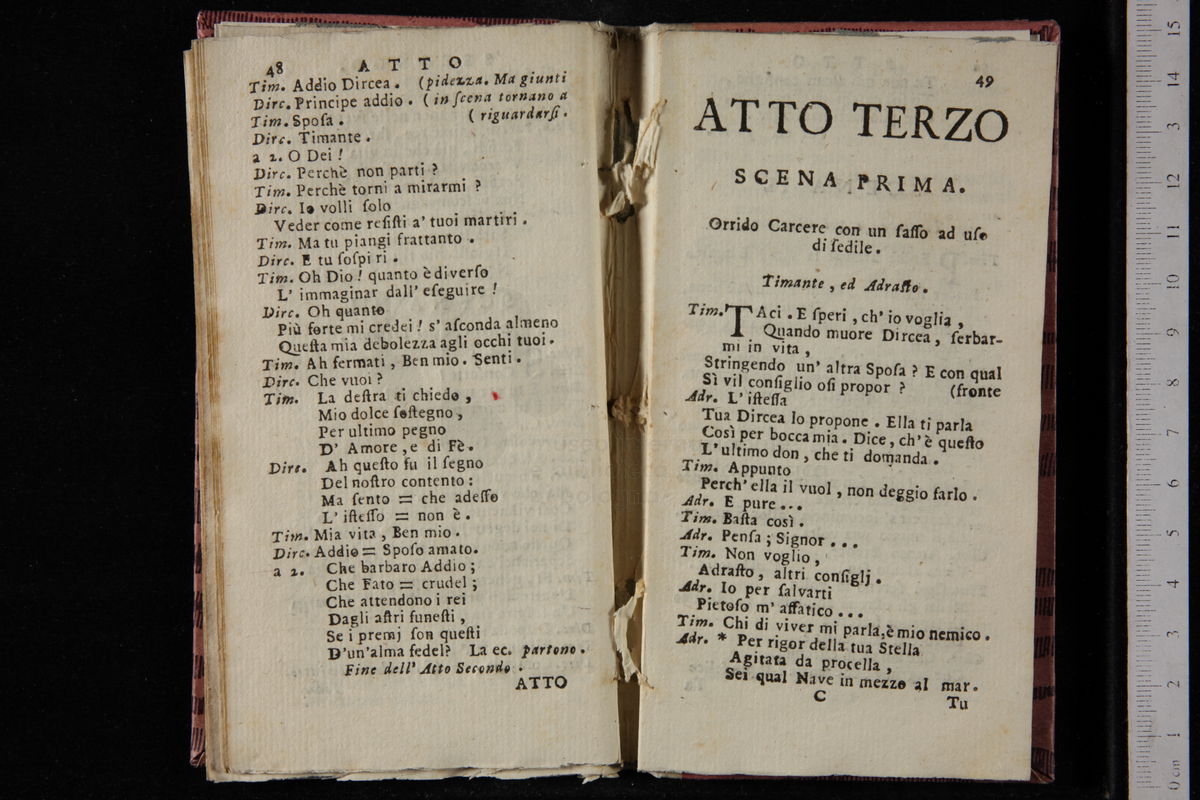 48 ATTO
Tim. Addio Dircea. (pidezza. Ma giunti
Dirc. Principe addio. (in ſcena tornano a
Tim. Spoſa. (riguardarſi.
Dirc. Timante.
a 2. O Dei!
Dirc. Perchè non parti?
Tim. Perchè torni a mirarmi?
Dirc. Io volli ſolo
Veder come reſiſti a' tuoi martiri.
Tim. Ma tu piangi frattanto.
Dirc. E tu ſoſpiri.
Tim. Oh Dio! quanto è diverſo
L' immaginar dall' eſeguire!
Dirc. Oh quanto
Più forte mi credei! s' aſconda almeno
Queſta mia debolezza agli occhi tuoi.
Tim. Ah fermati, Ben mio. Senti.
Dirc. Che vuoi?
Tim. La deſtra ti chiedo,
Mio dolce ſoſtegno,
Per ultimo pegno
D' Amore, e di Fè.
Dirc. Ah queſto fu il ſegno
Del noſtro contento:
Ma ſento = che adeſſo
L' iſteſſo = non è.
Tim. Mia vita, Ben mio.
Dirc. Addio = Spoſo amato.
a 2. Che barbaro Addio;
Che Fato = crudel;
Che attendono i rei
Dagli aſtri funeſti,
Se i premj ſon queſti
D'un'alma fedel? La ec. partono.
Fine dell' Atto Secondo.
ATTO
49
ATTO TERZO
SCENA PRIMA.
Orrido Carcere con un ſaſſo ad uſo
di ſedile.
Timante, ed Adraſto.
Tim. TAci. E ſperi, ch' io voglia,
Quando muore Dircea, ſerbar-
mi in vita,
Stringendo un' altra Spoſa? E con qual
Sì vil conſiglio oſi propor? (fronte
Adr. L' iſteſſa
Tua Dircea lo propone. Ella ti parla
Così per bocca mia. Dice, ch' è queſto
L'ultimo don, che ti domanda.
Tim. Appunto
Perch' ella il vuol, non deggio farlo.
Adr. E pure...
Tim. Baſta così.
Adr. Penſa; Signor...
Tim. Non voglio,
Adraſto, altri conſiglj.
Adr. Io per ſalvarti
Pietoſo m' affatico...
Tim. Chi di viver mi parla, è mio nemico.
Adr. * Per rigor della tua Stella
Agitata da procella,
Sei qual Nave in mezzo al mar.
C Tu
15
14
13
12
11
10
9
8
7
6
5
4
3
2
1
0 cm